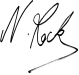 N. Rock